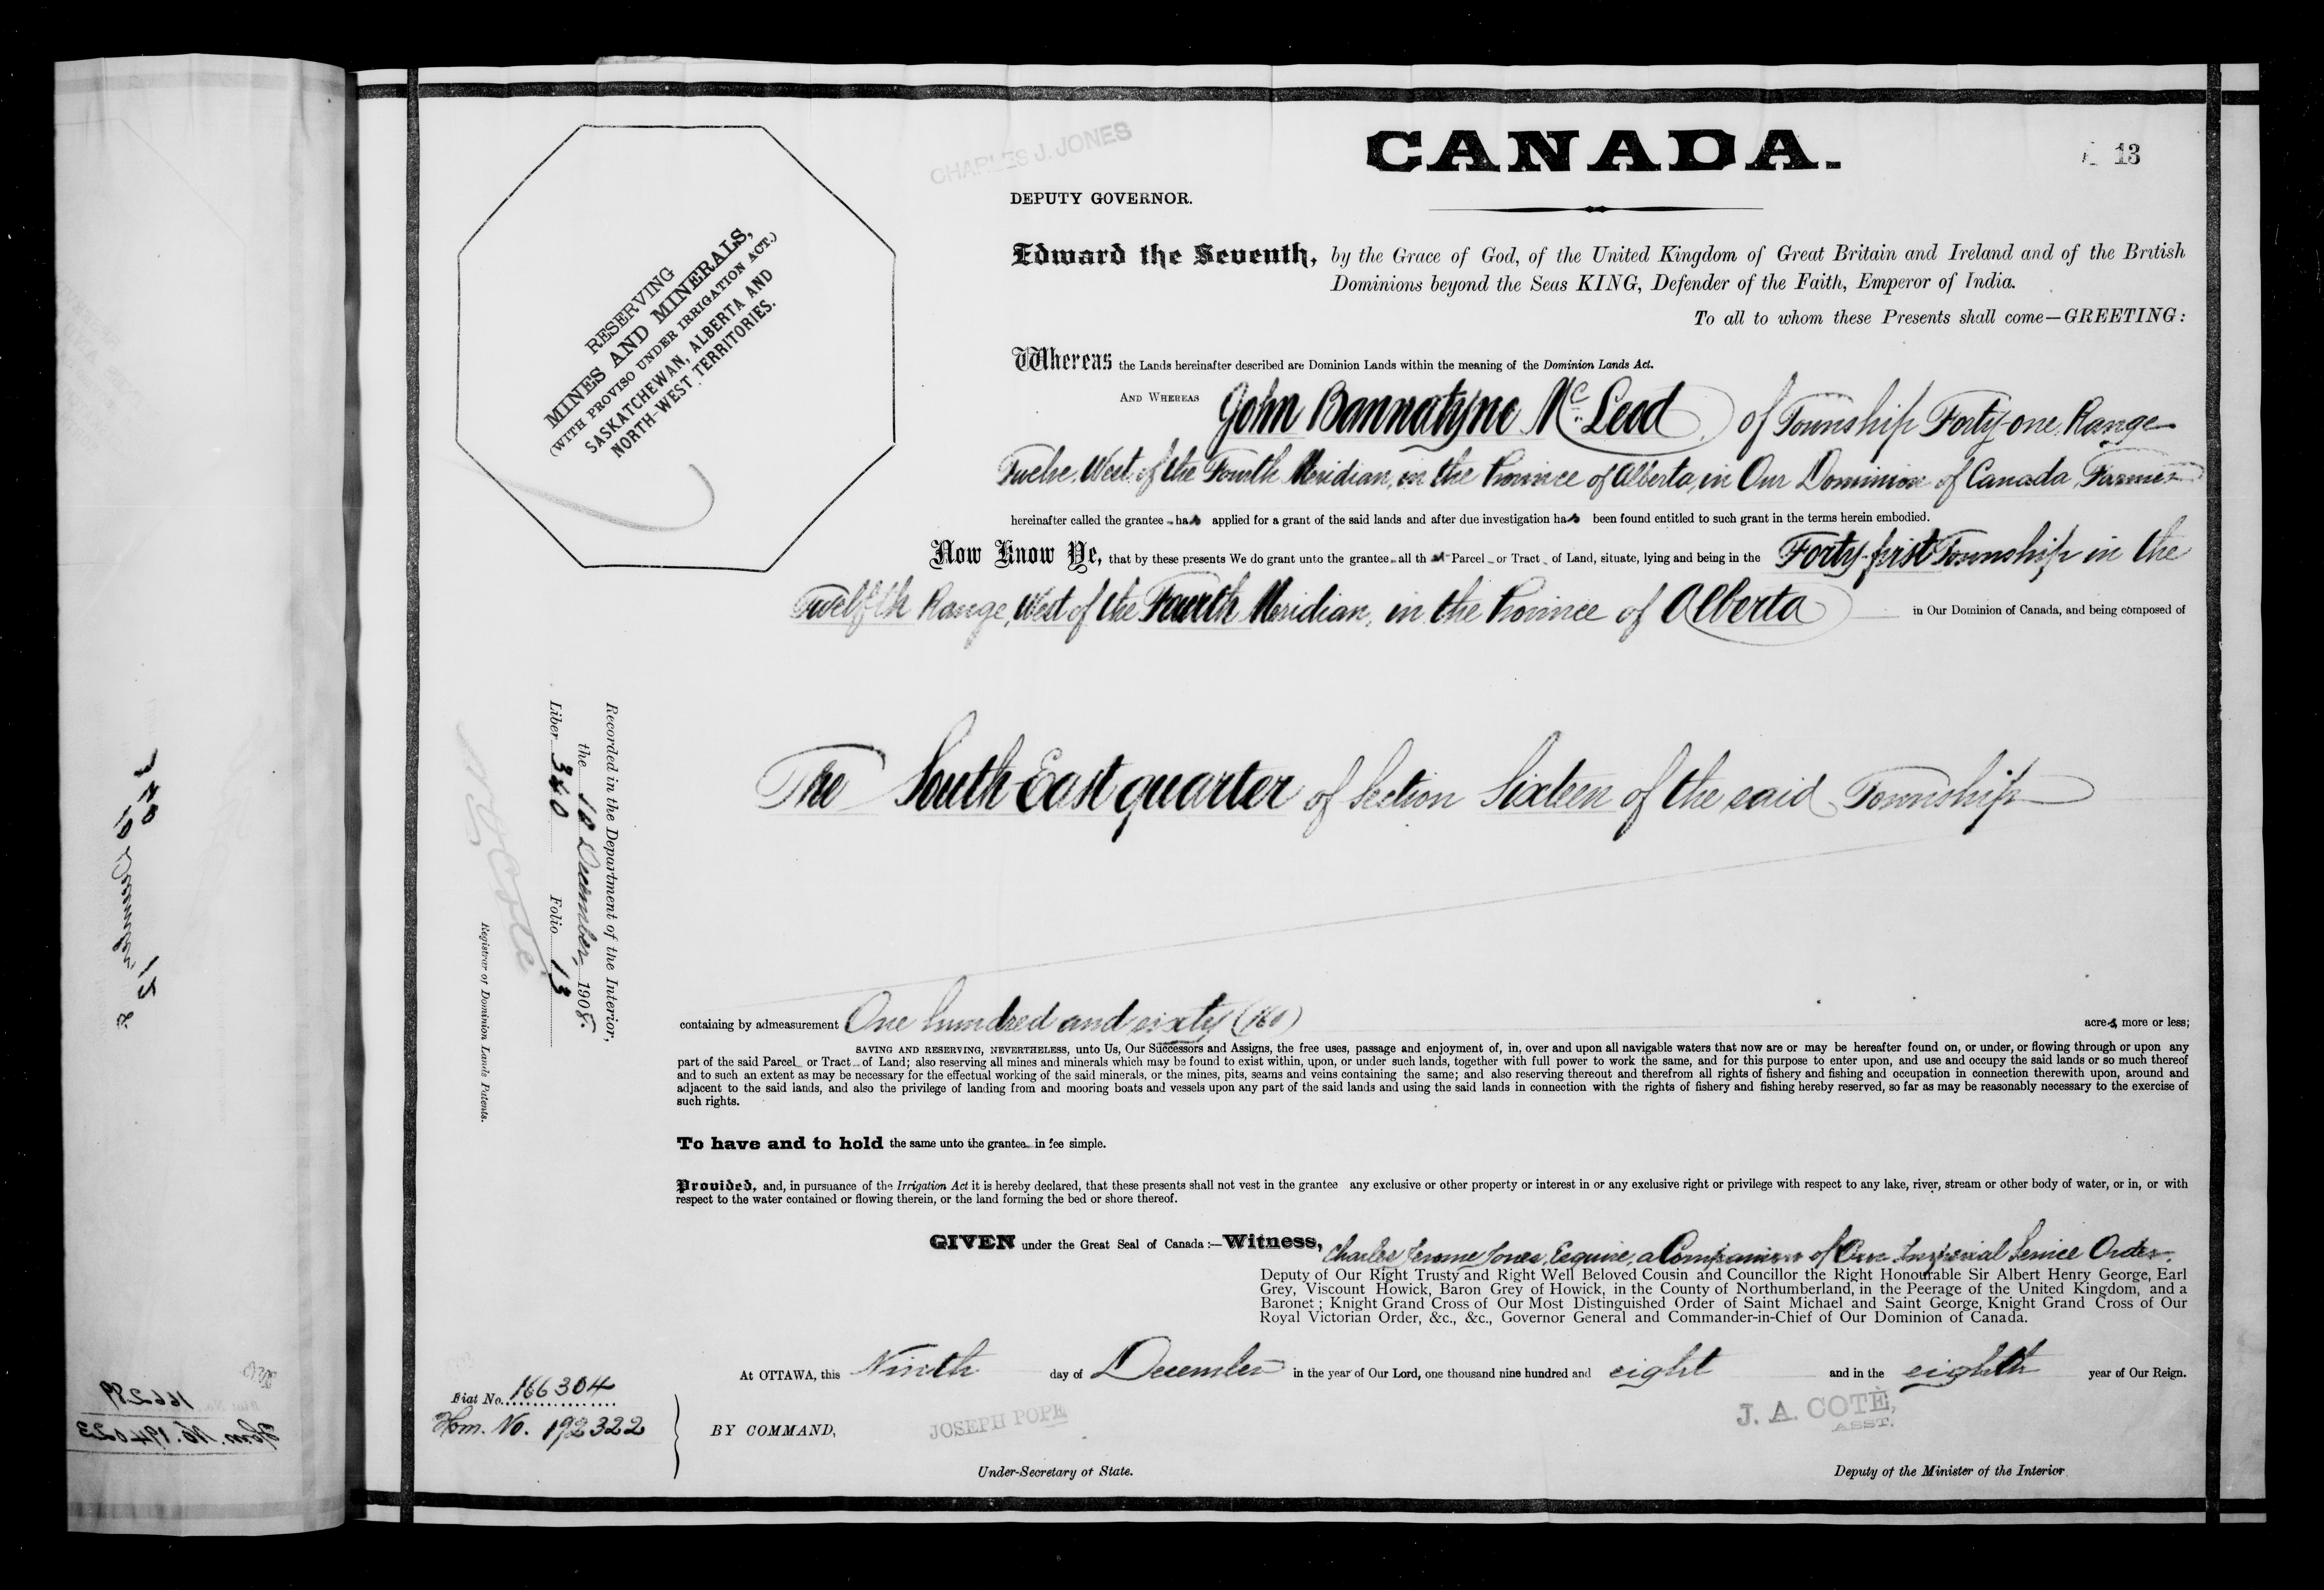 CHARLES J. JONES
CANADA.
13
DEPUTY GOVERNOR.
Edward the Seventh, by the Grace of God, of the United Kingdom of Great Britain and Ireland and of the British
Dominions beyond the Seas KING, Defender of the Faith, Emperor of India.
To all to whom these Presents shall come—GREETING:
RESERVING
MINES AND MINERALS,
(WITH PROVISO UNDER IRRIGATION ACT.)
SASKATCHEWAN, ALBERTA AND
NORTH-WEST TERRITORIES.
Whereas the Lands hereinafter described are Dominion Lands within the meaning of the Dominion Lands Act.
AND WHEREAS John Bannatyne McLeod of Township Forty-one, Range
Twelve, West of the Fourth Meridian, in the Province of Alberta, in Our Dominion of Canada, Farmer
hereinafter called the grantee has applied for a grant of the said lands and after due investigation has been found entitled to such grant in the terms herein embodied.
Now Know Ye, that by these presents We do grant unto the grantee all that Parcel or Tract of Land, situate, lying and being in the Forty-first Township in the
Twelfth Range, West of the Fourth Meridian, in the Province of Alberta in Our Dominion of Canada, and being composed of
The South East quarter of Section Sixteen of the said Township
Recorded in the Department of the Interior,
the 10 December, 1908.
Liber 340 Folio 13
Registrar of Dominion Lands Patents.
containing by admeasurement One hundred and sixty (160) acres, more or less;
SAVING AND RESERVING, NEVERTHELESS, unto Us, Our Successors and Assigns, the free uses, passage and enjoyment of, in, over and upon all navigable waters that now are or may be hereafter found on, or under, or flowing through or upon any
part of the said Parcel or Tract of Land; also reserving all mines and minerals which may be found to exist within, upon, or under such lands, together with full power to work the same, and for this purpose to enter upon, and use and occupy the said lands or so much thereof
and to such an extent as may be necessary for the effectual working of the said minerals, or the mines, pits, seams and veins containing the same; and also reserving thereout and therefrom all rights of fishery and fishing and occupation in connection therewith upon, around and
adjacent to the said lands, and also the privilege of landing from and mooring boats and vessels upon any part of the said lands and using the said lands in connection with the rights of fishery and fishing hereby reserved, so far as may be reasonably necessary to the exercise of
such rights.
To have and to hold the same unto the grantee in fee simple.
Provided, and, in pursuance of the Irrigation Act it is hereby declared, that these presents shall not vest in the grantee any exclusive or other property or interest in or any exclusive right or privilege with respect to any lake, river, stream or other body of water, or in, or with
respect to the water contained or flowing therein, or the land forming the bed or shore thereof.
GIVEN under the Great Seal of Canada:—Witness, Charles Jerome Jones, Esquire, a Companion of Our Imperial Service Order,
Deputy of Our Right Trusty and Right Well Beloved Cousin and Councillor the Right Honourable Sir Albert Henry George, Earl
Grey, Viscount Howick, Baron Grey of Howick, in the County of Northumberland, in the Peerage of the United Kingdom, and a
Baronet; Knight Grand Cross of Our Most Distinguished Order of Saint Michael and Saint George, Knight Grand Cross of Our
Royal Victorian Order, &c., &c., Governor General and Commander-in-Chief of Our Dominion of Canada.
At OTTAWA, this Ninth day of December in the year of Our Lord, one thousand nine hundred and eight and in the eighth year of Our Reign.
Fiat No. 166304
Hom. No. 192322
BY COMMAND,
JOSEPH POPE
Under-Secretary of State.
J. A. COTÉ,
ASST.
Deputy of the Minister of the Interior.
166289
Hom. No. 194023